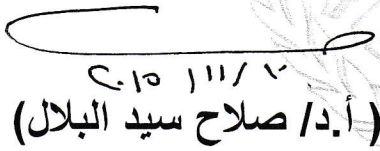 ٢٠١٥ / ١١ / ١٠
( أ.د/ صلاح سيد البلال)